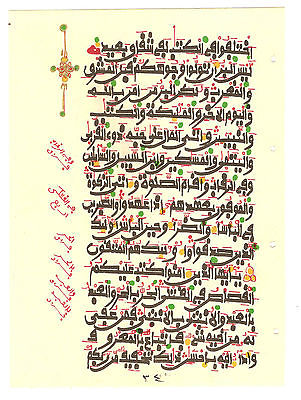 اختلفوا في الكتب لفي شقاق بعيد
ليس البر أن تولوا وجوهكم قبل المشرق
والمغرب ولكن البر من ءامن بالله
واليوم الاخر والملئكة والكتب
والنبيين وءاتى المال على حبه ذوي القربى
واليتمى والمسكين وابن السبيل والسائلين
وفي الرقاب وأقام الصلوة وءاتى الزكوة
والموفون بعهدهم إذا عهدوا والصبرين
في البأساء والضراء وحين البأس أولئك
الذين صدقوا وأولئك هم المتقون
يأيها الذين ءامنوا كتب عليكم
القصاص في القتلى الحر بالحر والعبد
بالعبد والأنثى بالأنثى فمن عفي
له من أخيه شيء فاتباع بالمعروف
وأداء إليه بإحسن ذلك تخفيف من ربكم
٣٤